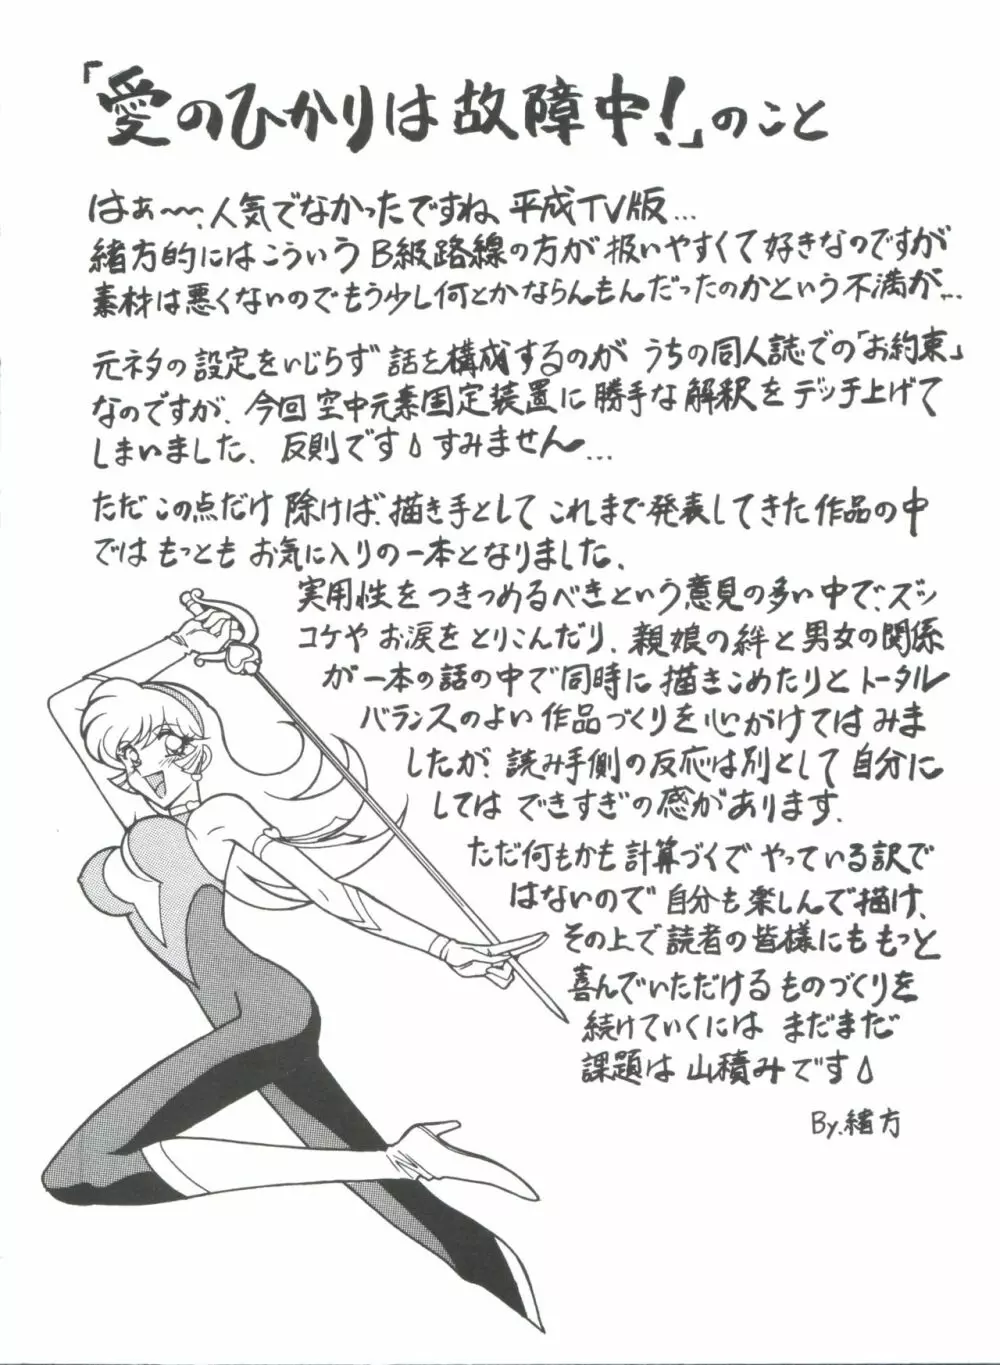 「愛のひかりは故障中!」のこと
はぁ〜〜、人気でなかったですね、平成TV版…
緒方的にはこういうB級路線の方が扱いやすくて好きなのですが
素材は悪くないのでもう少し何とかならんもんだったのかという不満が…
元ネタの設定をいじらず話を構成するのがうちの同人誌での「お約束」
なのですが、今回空中元素固定装置に勝手な解釈をデッチ上げて
しまいました、反則です すみません…
ただこの点だけ除けば、描き手としてこれまで発表してきた作品の中
ではもっともお気に入りの一本となりました、
実用性をつきつめるべきという意見の多い中で、ズッ
コケやお涙をとりこんだり、親娘の絆と男女の関係
が一本の話の中で同時に描きこめたりとトータル
バランスのよい作品づくりを心がけてはみま
したが、読み手側の反応は別として自分に
してはできすぎの感があります、
ただ何もかも計算づくでやっている訳で
はないので自分も楽しんで描け、
その上で読者の皆様にももっと
喜んでいただけるものづくりを
続けていくにはまだまだ
課題は山積みです
By.緒方